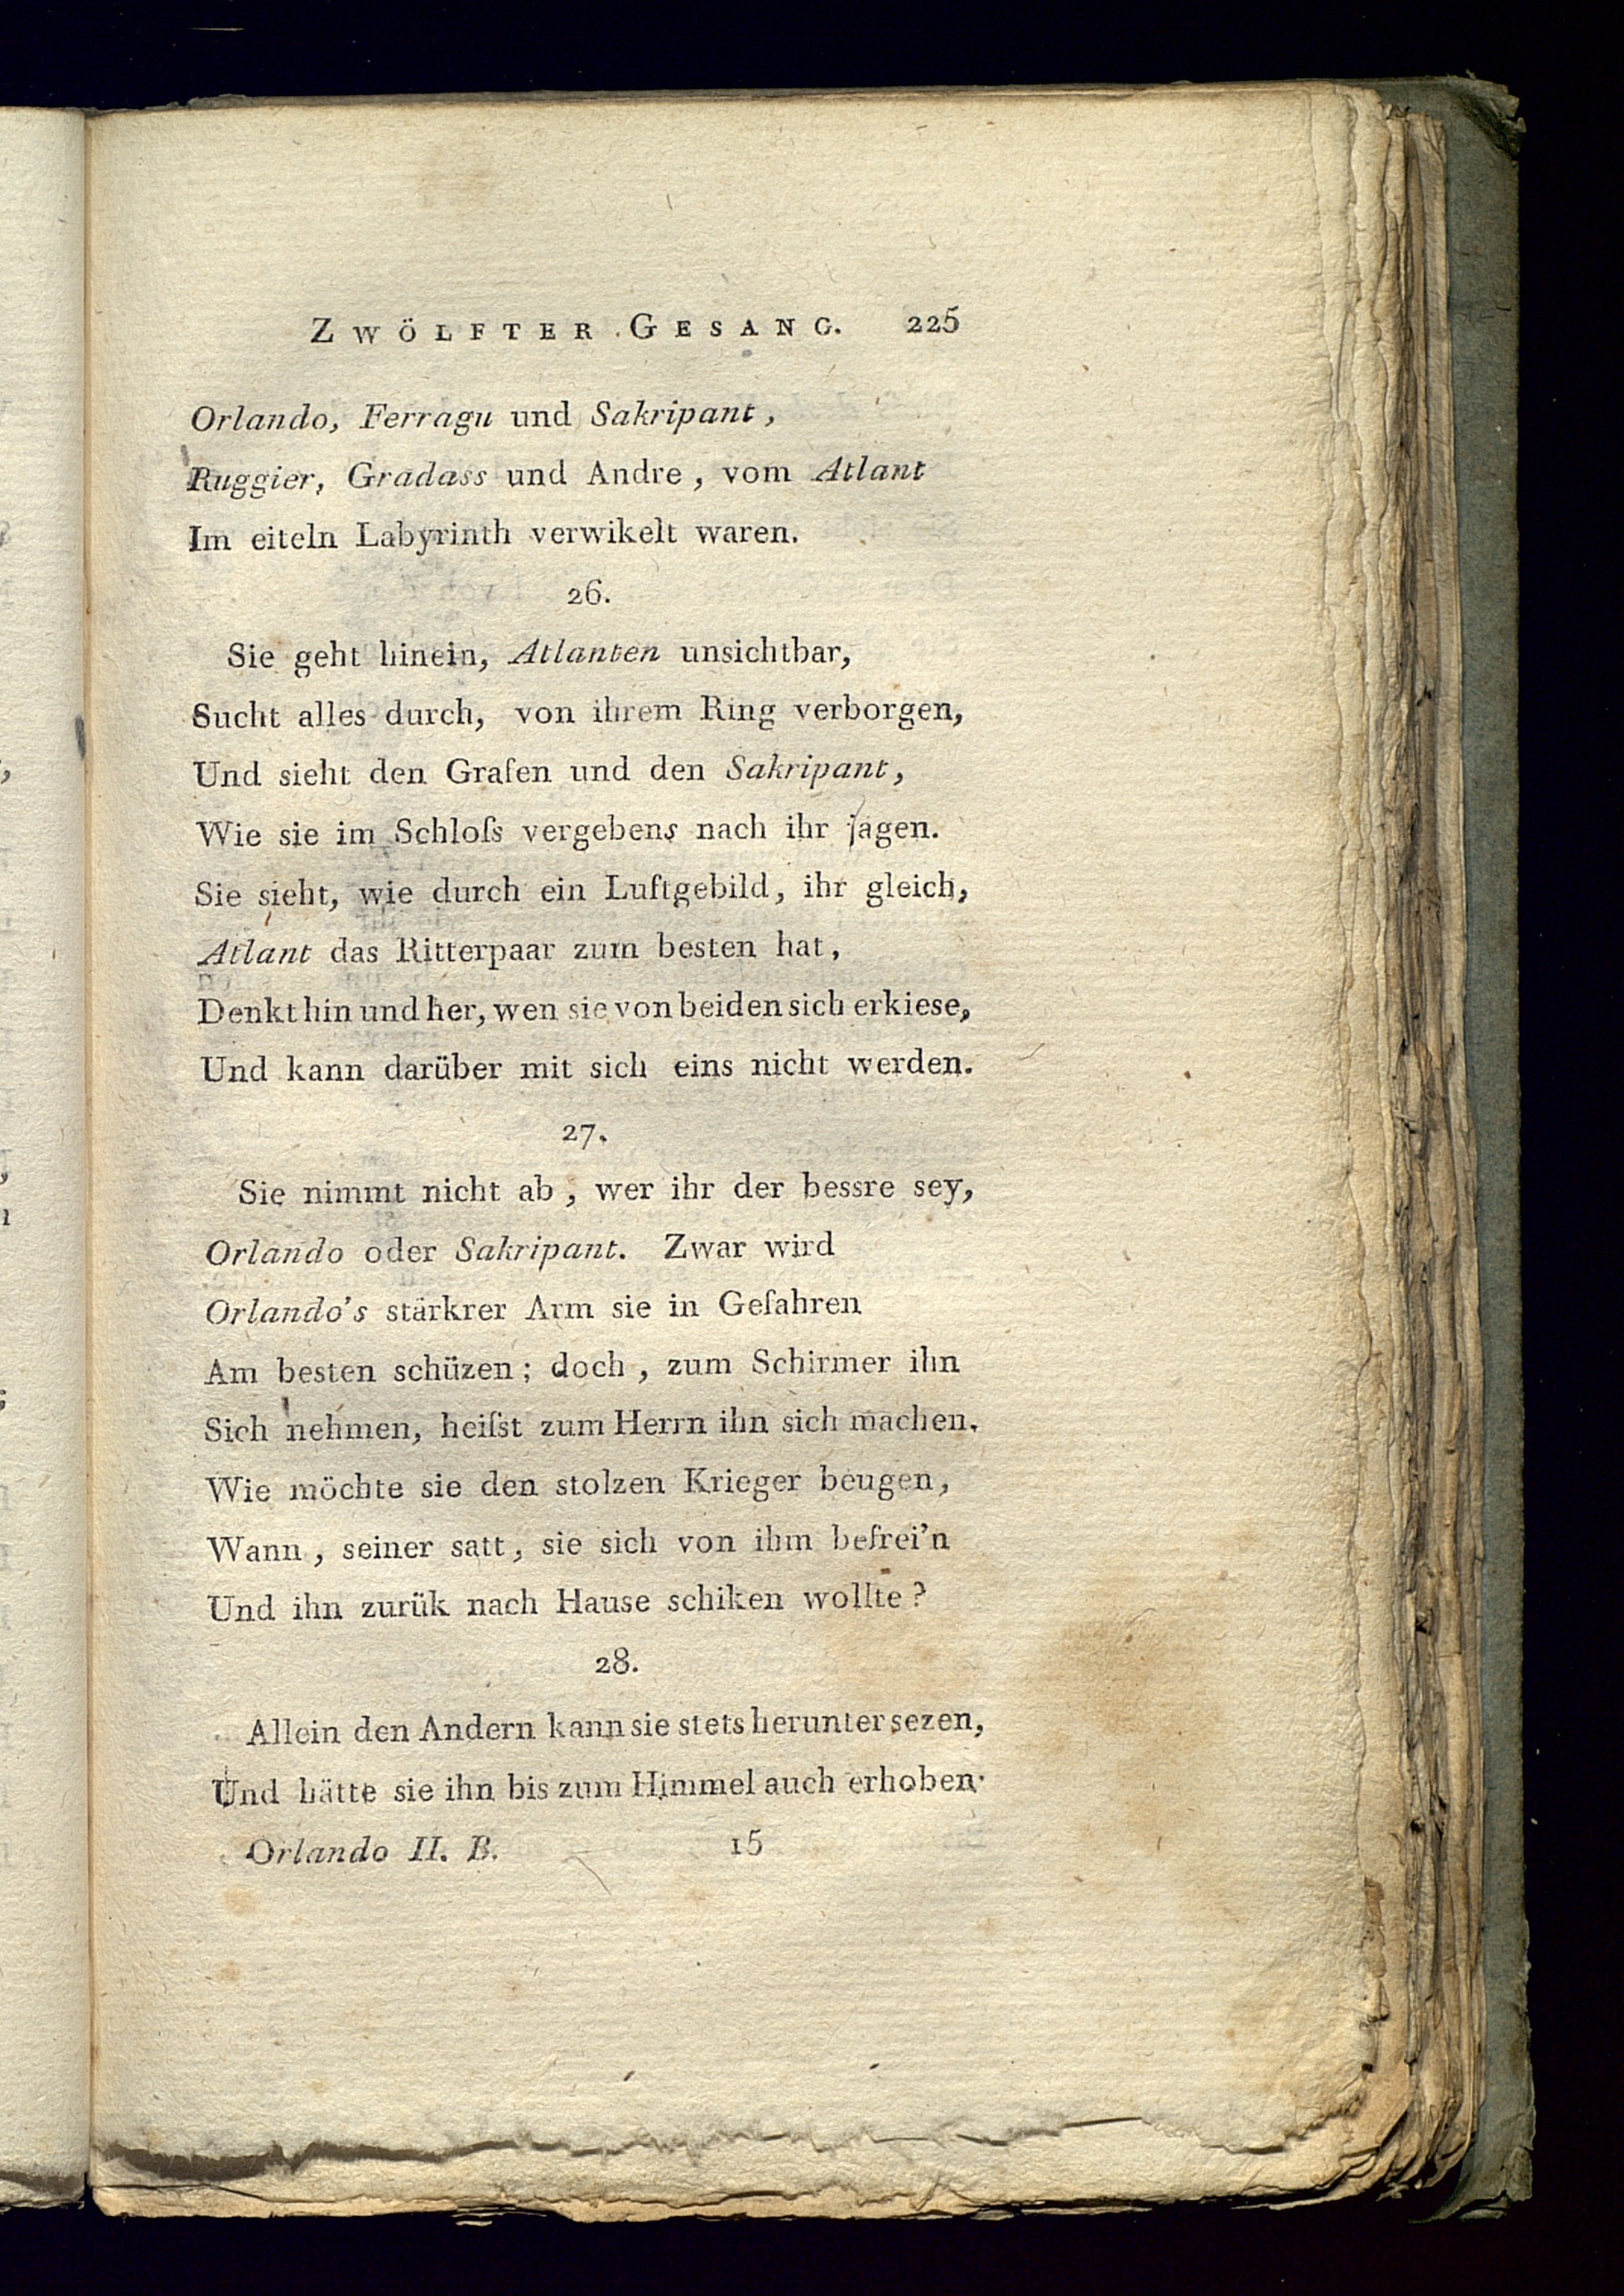 ZWÖLFTER GESANG. 225
Orlando, Ferragu und Sakripant,
Ruggier, Gradass und Andre, vom Atlant
Im eiteln Labyrinth verwikelt waren.
26.
Sie geht hinein, Atlanten unsichtbar,
Sucht alles durch, von ihrem Ring verborgen,
Und sieht den Grafen und den Sakripant,
Wie sie im Schloſs vergebens nach ihr jagen.
Sie sieht, wie durch ein Luftgebild, ihr gleich,
Atlant das Ritterpaar zum besten hat,
Denkt hin und her, wen sie von beiden sich erkiese,
Und kann darüber mit sich eins nicht werden.
27.
Sie nimmt nicht ab, wer ihr der bessre sey,
Orlando oder Sakripant. Zwar wird
Orlando's stärkrer Arm sie in Gefahren
Am besten schüzen; doch, zum Schirmer ihn
Sich nehmen, heiſst zum Herrn ihn sich machen.
Wie möchte sie den stolzen Krieger beugen,
Wann, seiner satt, sie sich von ihm befrei'n
Und ihn zurük nach Hause schiken wollte?
28.
Allein den Andern kann sie stets herunter sezen,
Und hätte sie ihn bis zum Himmel auch erhoben.
Orlando II. B. 15